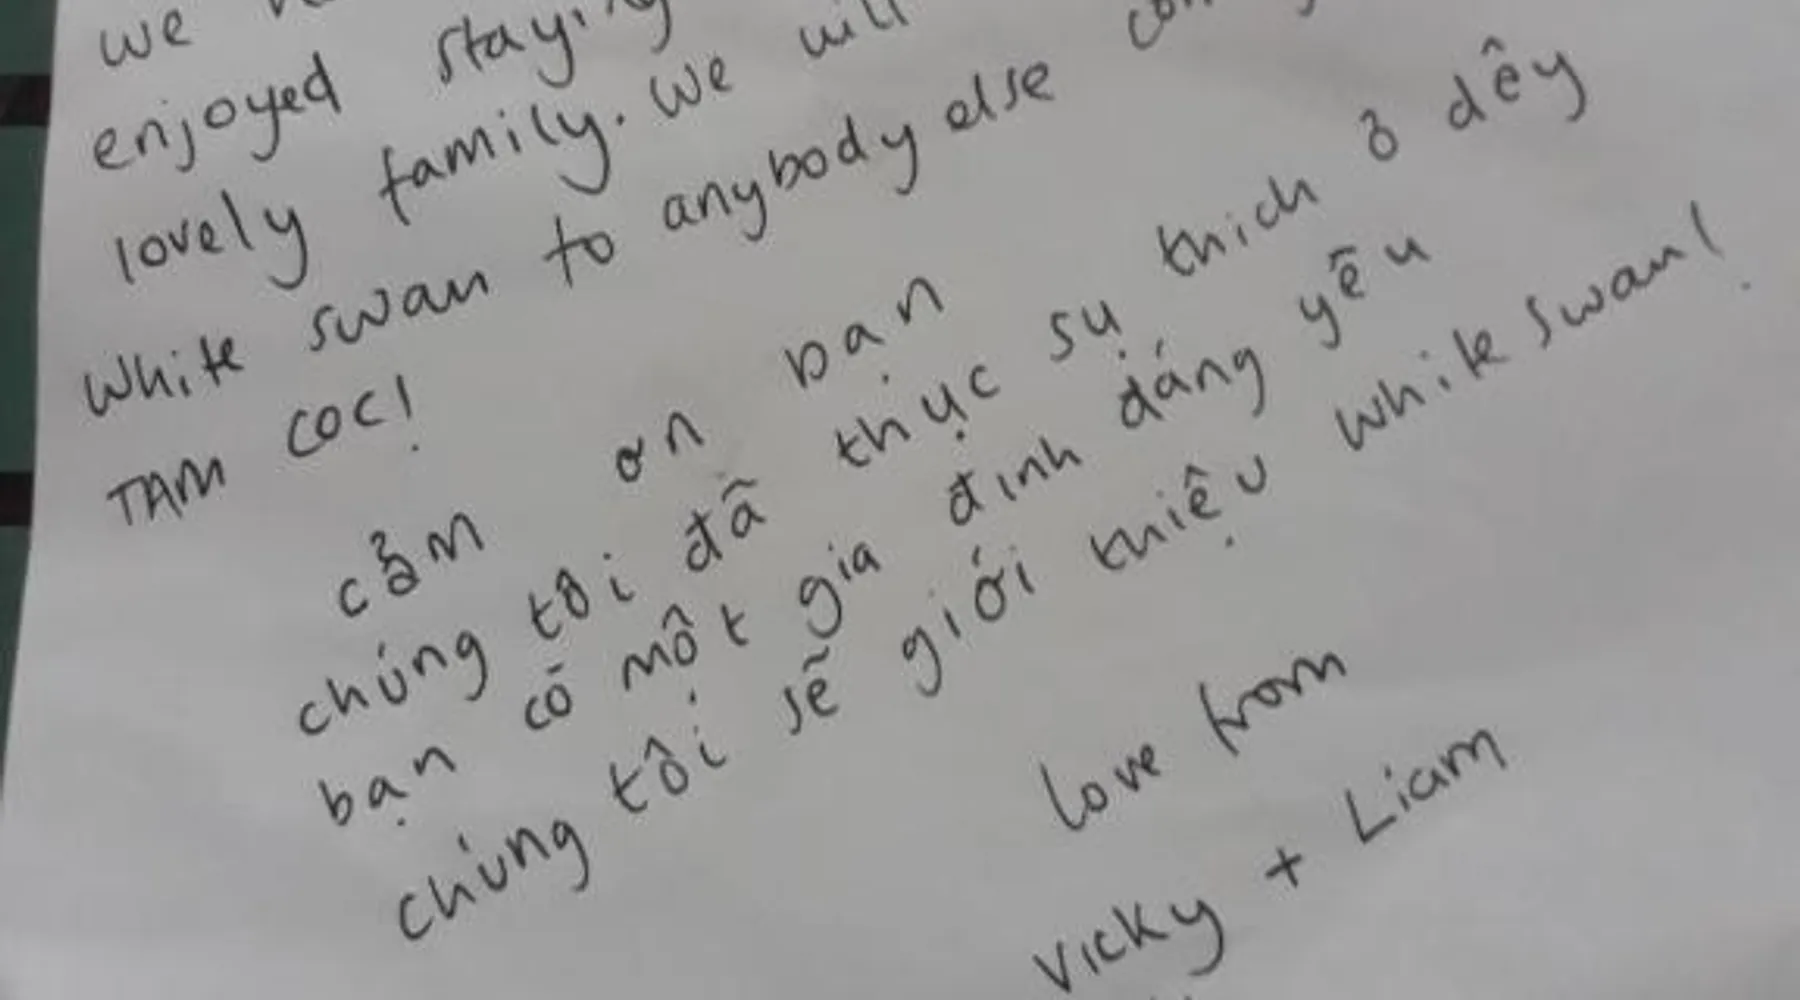 we
enjoyed staying
lovely family. We will
White swan to anybody else
TAM COC!
cảm ơn bạn
chúng tôi đã thực sụ thich ở dêy
bạn có một gia đinh dáng yêu
chúng tôi sẽ giới thiệu White Swan!
love from
Vicky + Liam